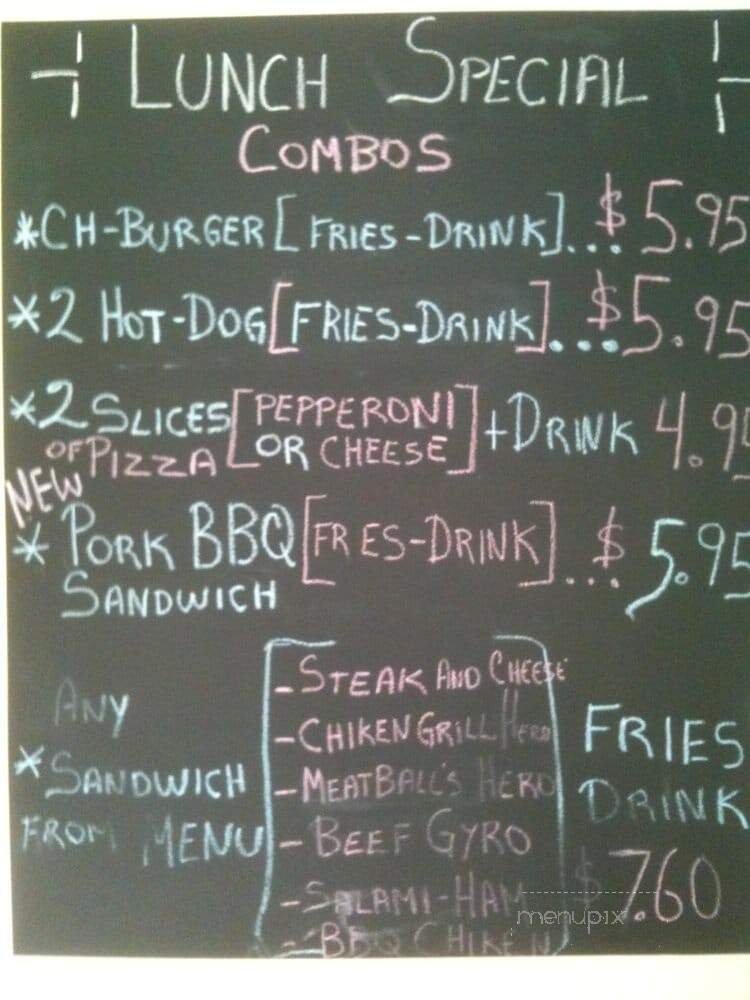 LUNCH SPECIAL
COMBOS
*CH-BURGER [FRIES-DRINK]...$5.95
*2 HOT-DOG [FRIES-DRINK]...$5.95
*2 SLICES [PEPPERONI
OF PIZZA OR CHEESE] +DRINK 4.95
NEW
* PORK BBQ [FR ES-DRINK]...$5.95
SANDWICH
ANY
*SANDWICH
FROM MENU
-STEAK AND CHEESE
-CHIKEN GRILL HERO
-MEATBALL'S HERO
-BEEF GYRO
-SALAMI-HAM
-BBQ CHIKEN
FRIES
DRINK
$7.60
menupix